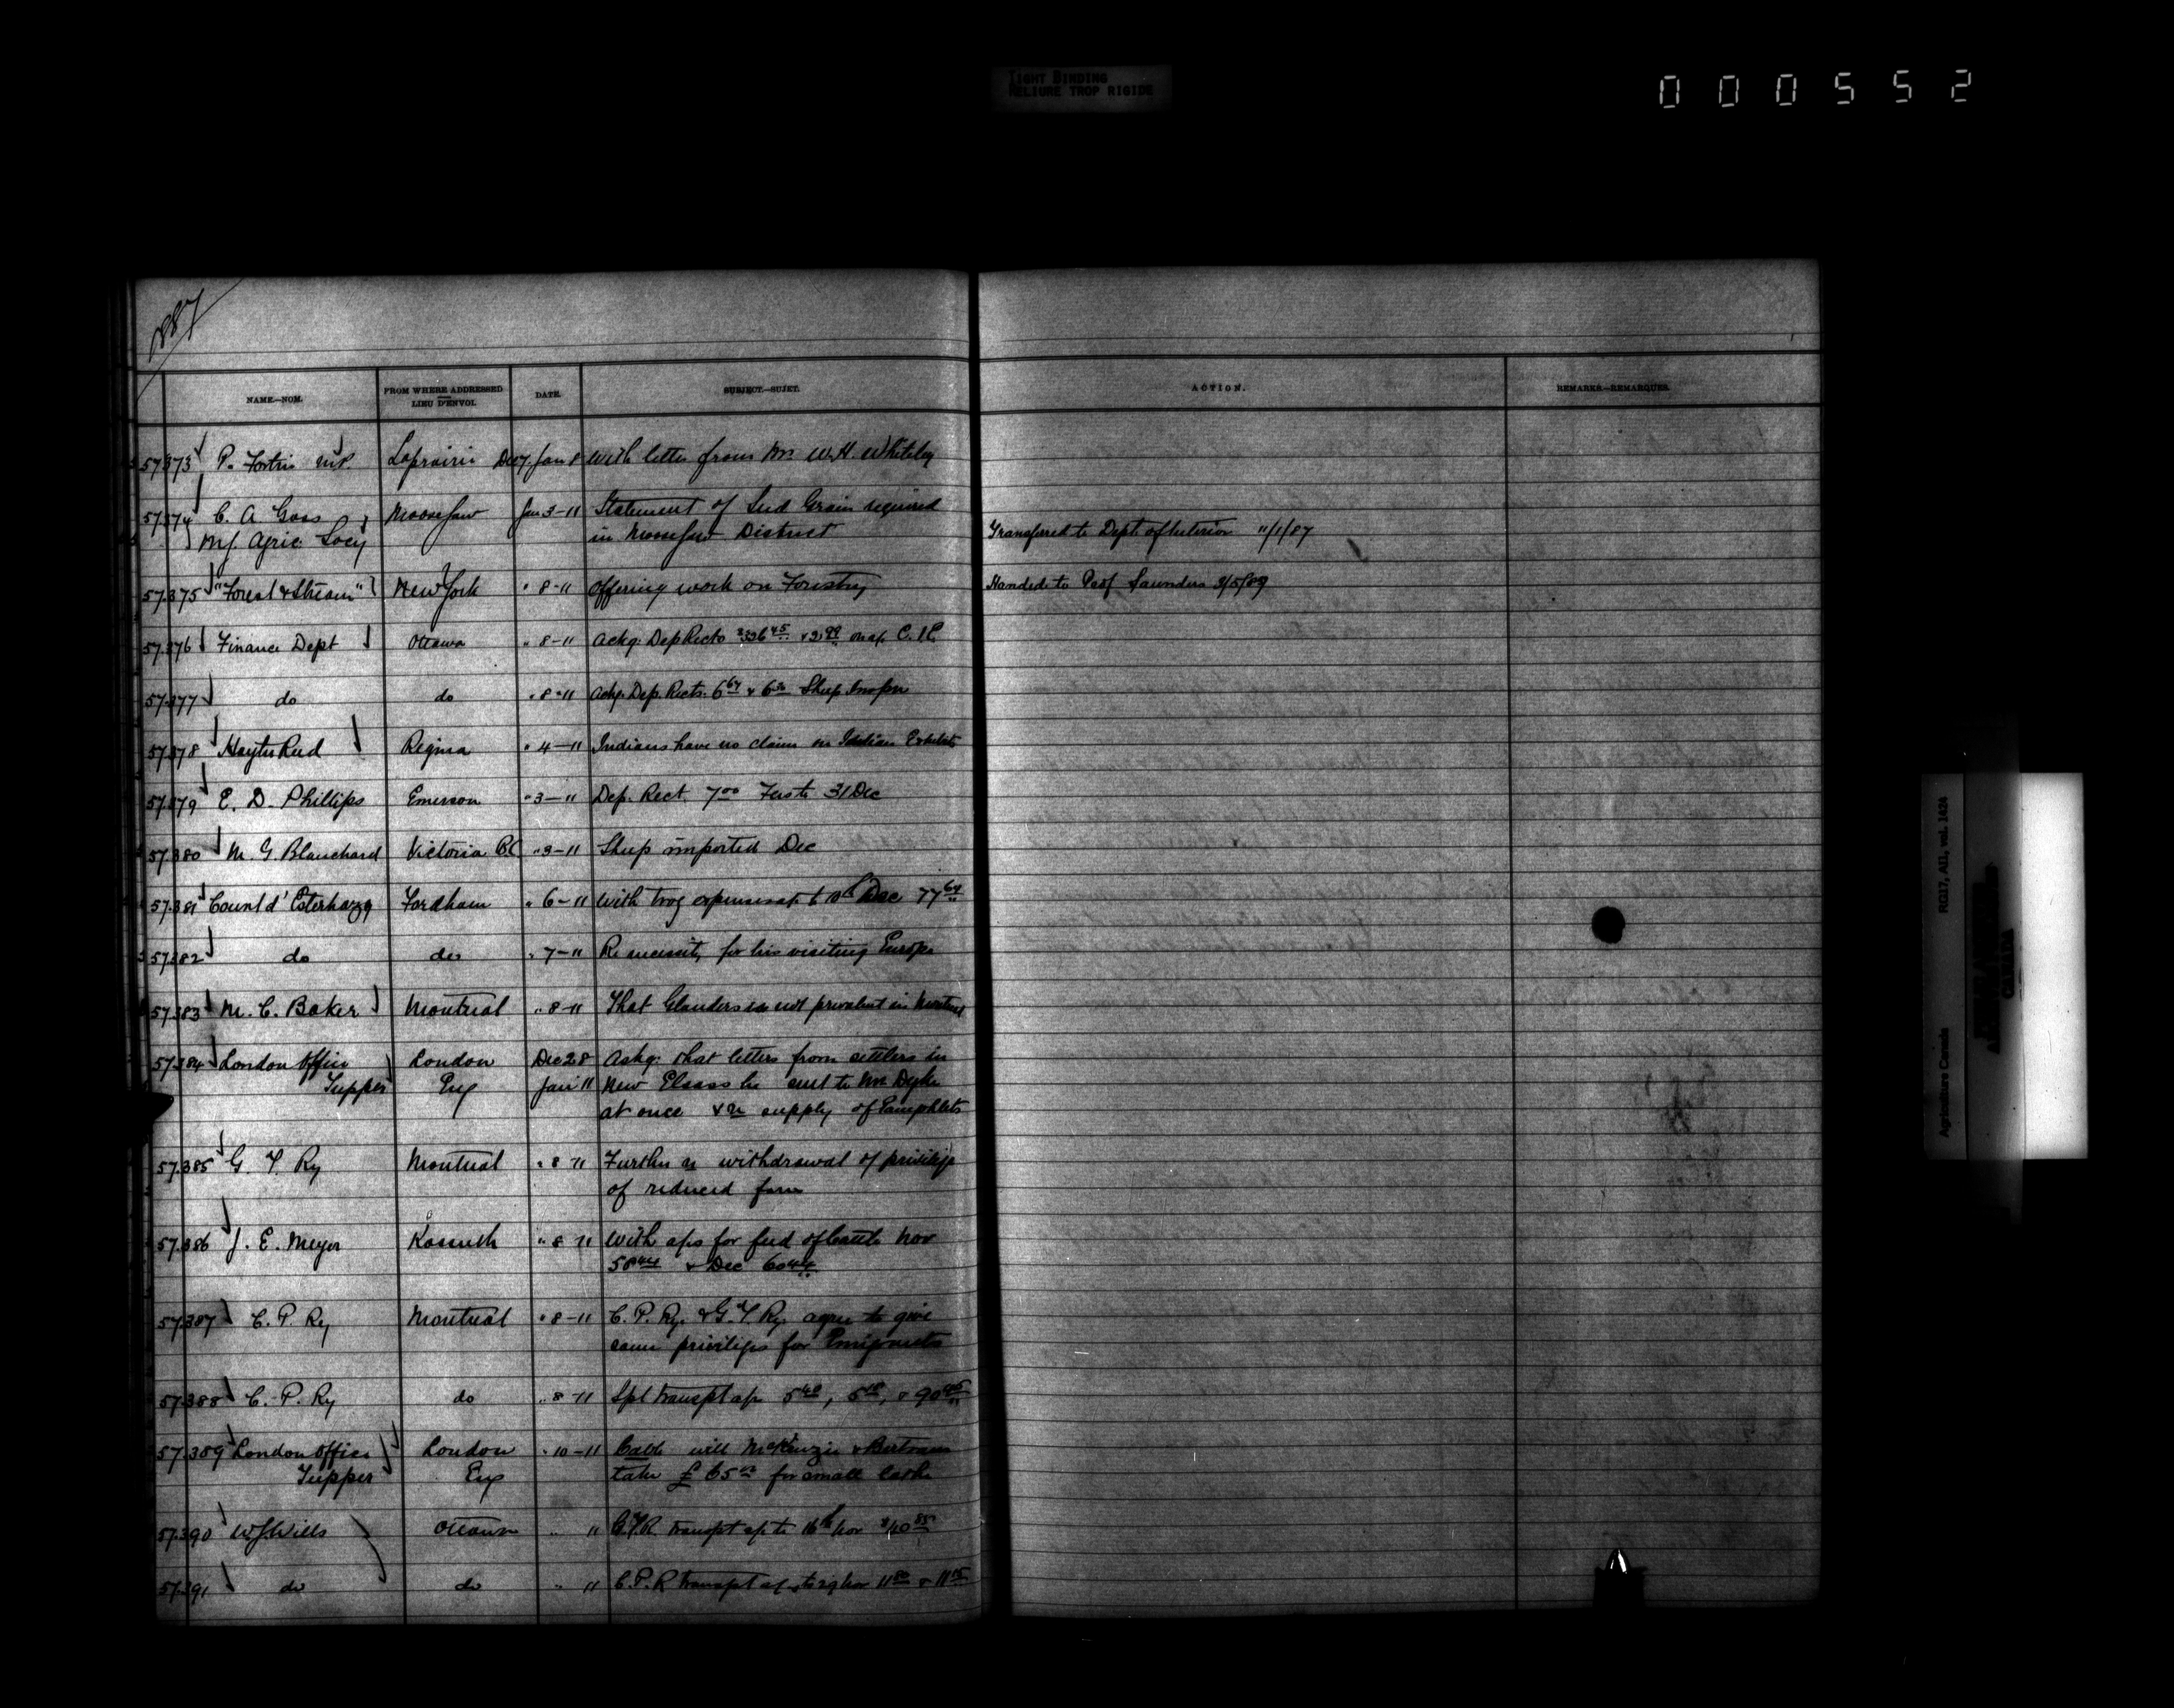 TIGHT BINDING
RELIURE TROP RIGIDE
000552
887
NAME.—NOM. FROM WHERE ADDRESSED LIEU D'ENVOI. DATE. SUBJECT.—SUJET. ACTION. REMARKS.—REMARQUES.
57373 P. Fortin M.P. Laprairie Dec 7. Jan 8 With letter from Mr. W.H. Whiteley
57374 C. A. Gass Moosejaw Jan 3-11 Statement of Seed Grain required
MJ. Agric. Socy in Moosejaw District Transferred to Dept. of Interior 11/1/87
57375 "Forest & Stream" New York " 8-11 Offering work on Forestry Handed to Prof Saunders 3/5/89
57376 Finance Dept Ottawa " 8-11 Ackg. Dep Rects on a/c C.I.E.
57377 do do " 8-11 Ackg. Dep. Rects. 6 64 & 6 Sheep Inspn
57378 Hayter Reed Regina " 4-11 Indians have no claim on Indian Exhibits
57379 E. D. Phillips Emerson " 3-11 Dep. Rect. 7 00 Fees to 31 Dec
57380 M. G. Blanchard Victoria B.C. " 3-11 Sheep imported Dec
57381 Count d'Esterhazy Fordham " 6-11 With trvg expenses a/c to 10th Dec 77 64
57382 do do " 7-11 Re necessity for his visiting Europe
57383 M. C. Baker Montreal " 8-11 That Glanders is not prevalent in Montreal
57384 London Office London Dec 28 Askg. that letters from settlers in
Tupper Eng Jan 11 New Elsass be sent to Mr Dyke
at once & re supply of Pamphlets
57385 G. T. Ry Montreal " 8 11 Further re withdrawal of privilege
of reduced fares
57386 J. E. Meyer Kossuth " 8 11 With a/cs for feed of Cattle Nov
58 & Dec 60
57387 C. P. Ry Montreal " 8-11 C. P. Ry. & G. T. Ry. agree to give
same privileges for Emigrants
57388 C. P. Ry do " 8-11 Spl transpt a/c 5 40, & 90
57389 London Office London " 10-11 Cable will McKenzie & Bertram
Tupper Eng take £65 for small
57390 W J Wills Ottawa " 11 G.T.R. transpt a/c to 16th Nov
57391 do do " 11 C.P.R transpt a/c to 29 Nov 11 & 11
Agriculture Canada RG17, AII, vol. 1424